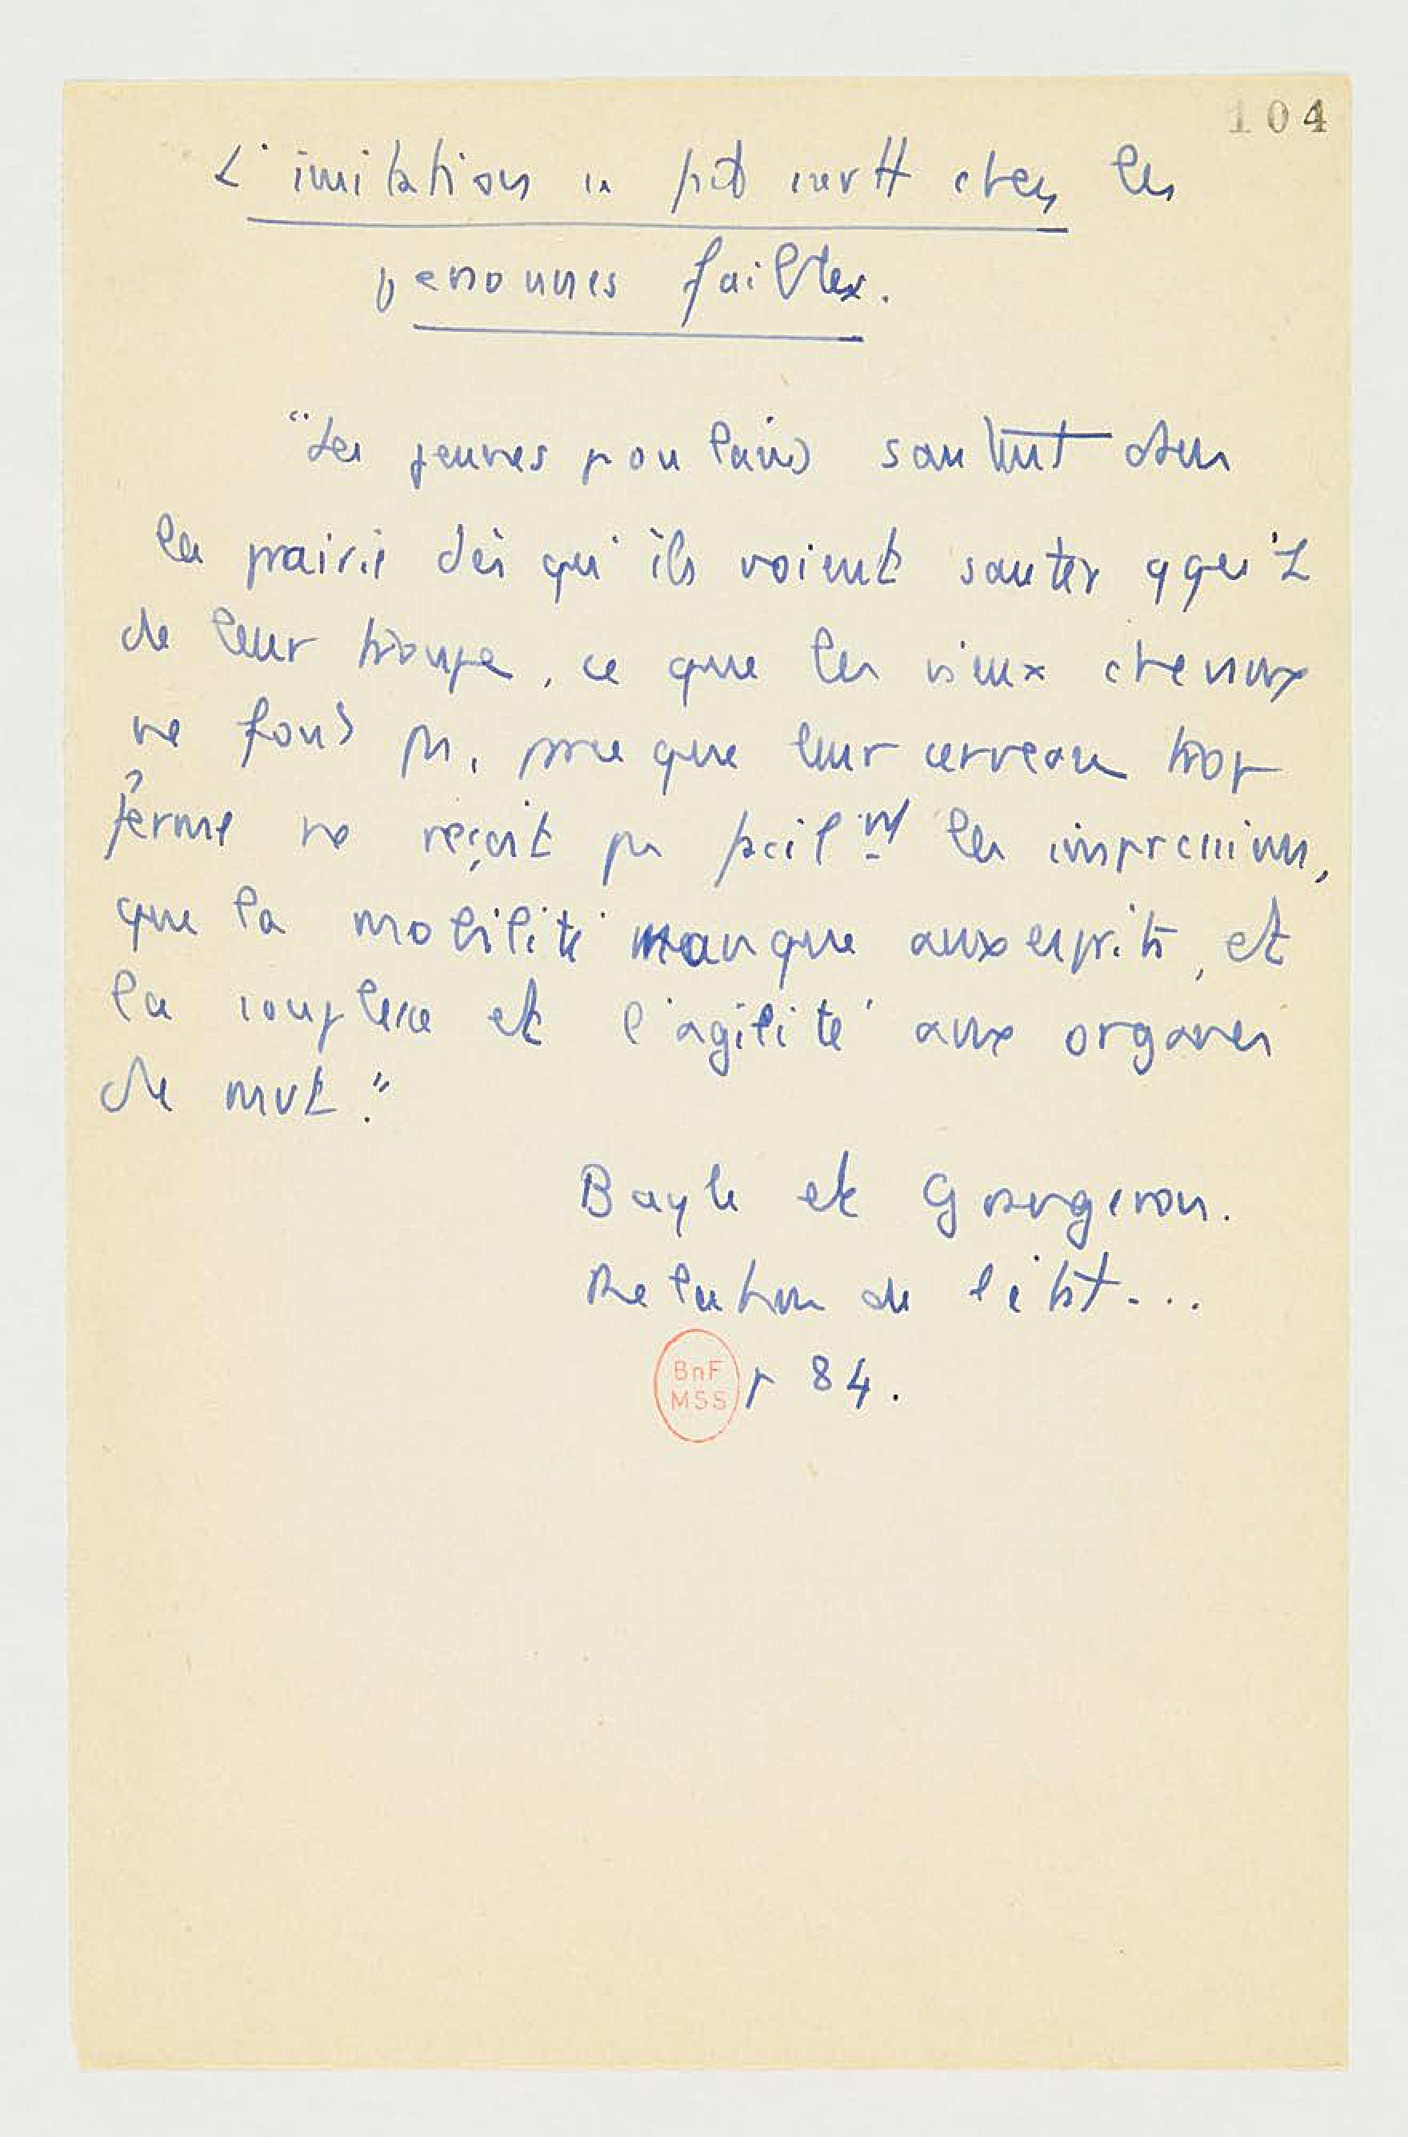 104
L'imitation se fait surtt chez les
personnes faibles.
"Les jeunes poulains sautent dans
la prairie dès qu'ils voient sauter qqu'1
de leur troupe, ce que les vieux chevaux
ne font pas, parce que leur cerveau trop
ferme ne reçoit pas facilmt les impressions,
que la mobilité manque aux esprits, et
la souplesse et l'agilité aux organes
de mvt."
Bayle et Grangeron.
Relation de l'état...
BnF
MSS
p 84.